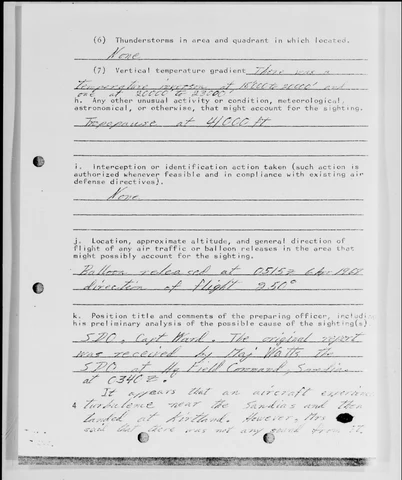 (6) Thunderstorms in area and quadrant in which located.
None
(7) Vertical temperature gradient There was a
temperature inversion at 18000 to 20000' and
one at 20000 to 23000'
h. Any other unusual activity or condition, meteorological,
astronomical, or otherwise, that might account for the sighting.
Tropopause at 41000 ft
i. Interception or identification action taken (such action is
authorized whenever feasible and in compliance with existing air
defense directives).
None
j. Location, approximate altitude, and general direction of
flight of any air traffic or balloon releases in the area that
might possibly account for the sighting.
Balloon released at 0515z 6 Apr 1967
direction of flight 250°
k. Position title and comments of the preparing officer, includin
his preliminary analysis of the possible cause of the sighting(s)
SDO, Capt Ward. The original report
was received by Maj Watts the
SDO at Hq Field Command, Sandia
at 0340z.
It appears that an aircraft experienc
4 turbulence near the Sandias and then
landed at Kirtland. However, Mrs
said that there was not any sound from it.